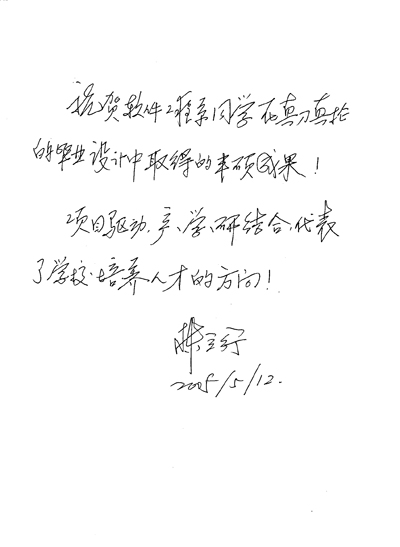 祝贺软件工程系同学在真刀真枪
的毕业设计中取得的丰硕成果!
项目驱动,产、学、研结合,代表
了学校培养人才的方向!
2005/5/12.